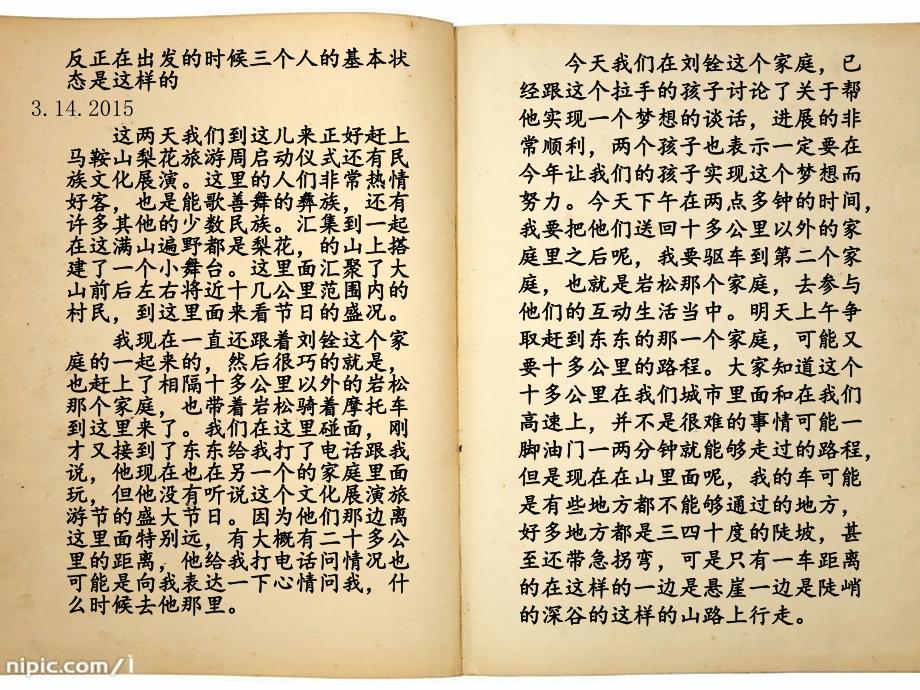 反正在出发的时候三个人的基本状
态是这样的
3.14.2015
这两天我们到这儿来正好赶上
马鞍山梨花旅游周启动仪式还有民
族文化展演。这里的人们非常热情
好客，也是能歌善舞的彝族，还有
许多其他的少数民族。汇集到一起
在这满山遍野都是梨花，的山上搭
建了一个小舞台。这里面汇聚了大
山前后左右将近十几公里范围内的
村民，到这里面来看节日的盛况。
我现在一直还跟着刘铨这个家
庭的一起来的，然后很巧的就是，
也赶上了相隔十多公里以外的岩松
那个家庭，也带着岩松骑着摩托车
到这里来了。我们在这里碰面，刚
才又接到了东东给我打了电话跟我
说，他现在也在另一个的家庭里面
玩，但他没有听说这个文化展演旅
游节的盛大节日。因为他们那边离
这里面特别远，有大概有二十多公
里的距离，他给我打电话问情况也
可能是向我表达一下心情问我，什
么时候去他那里。
今天我们在刘铨这个家庭，已
经跟这个拉手的孩子讨论了关于帮
他实现一个梦想的谈话，进展的非
常顺利，两个孩子也表示一定要在
今年让我们的孩子实现这个梦想而
努力。今天下午在两点多钟的时间，
我要把他们送回十多公里以外的家
庭里之后呢，我要驱车到第二个家
庭，也就是岩松那个家庭，去参与
他们的互动生活当中。明天上午争
取赶到东东的那一个家庭，可能又
要十多公里的路程。大家知道这个
十多公里在我们城市里面和在我们
高速上，并不是很难的事情可能一
脚油门一两分钟就能够走过的路程，
但是现在在山里面呢，我的车可能
是有些地方都不能够通过的地方，
好多地方都是三四十度的陡坡，甚
至还带急拐弯，可是只有一车距离
的在这样的一边是悬崖一边是陡峭
的深谷的这样的山路上行走。
nipic.com/i